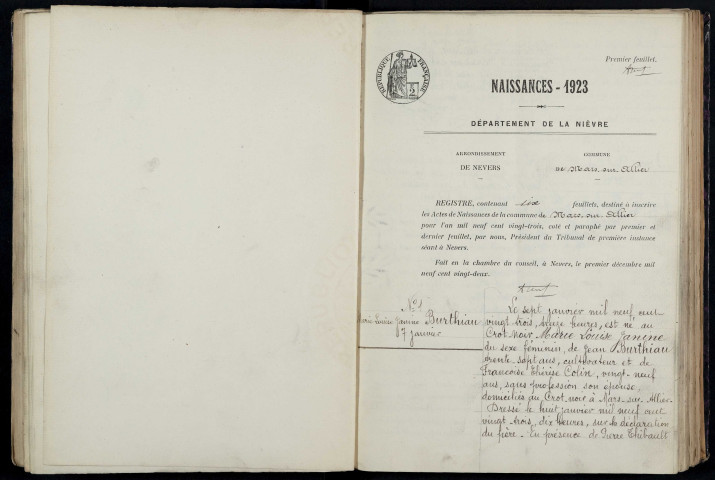 Premier feuillet.
RÉPUBLIQUE FRANÇAISE
NAISSANCES - 1923
DÉPARTEMENT DE LA NIÈVRE
ARRONDISSEMENT
DE NEVERS
COMMUNE
DE Mars-sur-Allier
REGISTRE, contenant six feuillets, destiné à inscrire
les Actes de Naissances de la commune de Mars-sur-Allier
pour l'an mil neuf cent vingt-trois, coté et paraphé par premier et
dernier feuillet, par nous, Président du Tribunal de première instance
séant à Nevers.
Fait en la chambre du conseil, à Nevers, le premier décembre mil
neuf cent vingt-deux.
N° 1
Marie Louise Janine Burthiau
7 janvier
Le sept janvier mil neuf cent
vingt trois, heures, est né au
Crot-noir, Marie Louise Janine
du sexe féminin, de Jean Burthiau
trente-sept ans, cultivateur et de
Françoise Thérèse Colin, vingt-neuf
ans, sans profession son épouse,
domiciliés au Crot-noir à Mars-sur-Allier.
Dressé le huit janvier mil neuf cent
vingt trois, dix heures, sur la déclaration
du père. En présence de Pierre Thibault